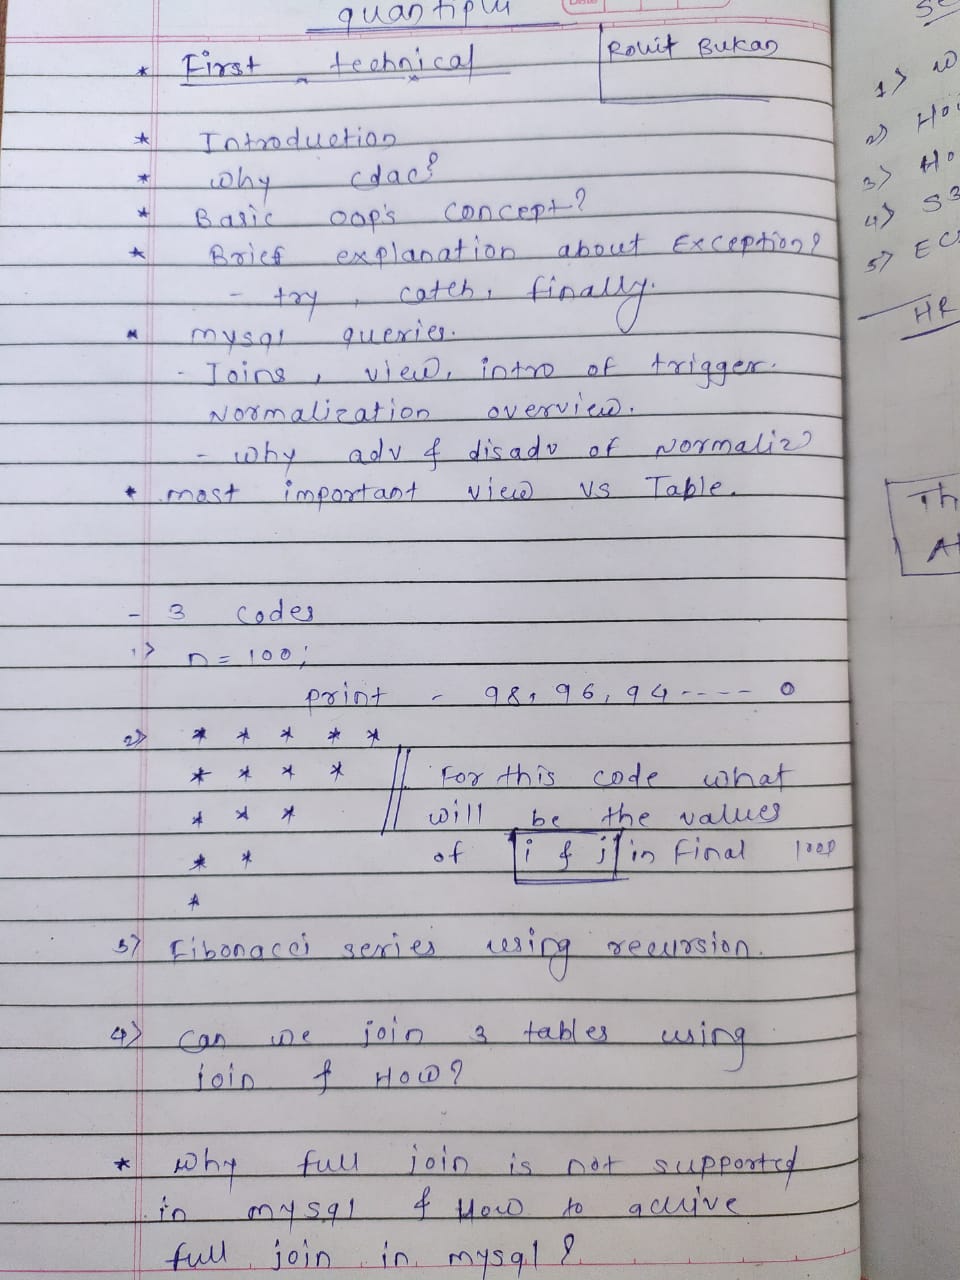 quantiphi
* First technical
Rohit Bukan
* Introduction
* Why cdac?
* Basic oop's concept?
* Brief explanation about Exception?
- try, catch, finally.
* mysql queries.
- Joins, view, intro of trigger.
Normalization overview.
- Why adv & disadv of Normaliz
* most important view vs Table.
- 3 codes
1> n = 100;
print - 98, 96, 94 ---- 0
2> * * * * *
* * * *
* * *
* *
*
For this code what
will be the values
of i & j in Final loop
3> Fibonacci series using recursion.
4> Can we join 3 tables using
join & How?
* Why full join is not supported
in mysql & How to achive
full join in mysql?
1>
2> Ho
3> Ho
4> S3
5> EC
HR
Th